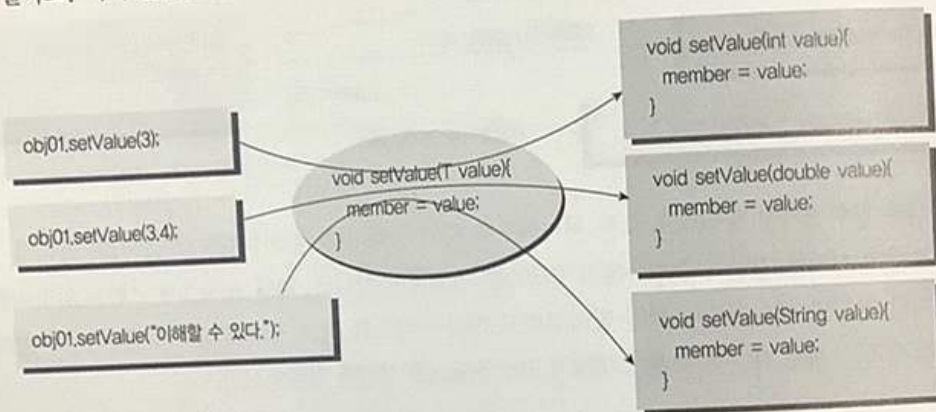 obj01.setValue(3);
obj01.setValue(3.4);
obj01.setValue("이해할 수 있다.");
void setValue(T value){
member = value;
}
void setValue(int value){
member = value;
}
void setValue(double value){
member = value;
}
void setValue(String value){
member = value;
}